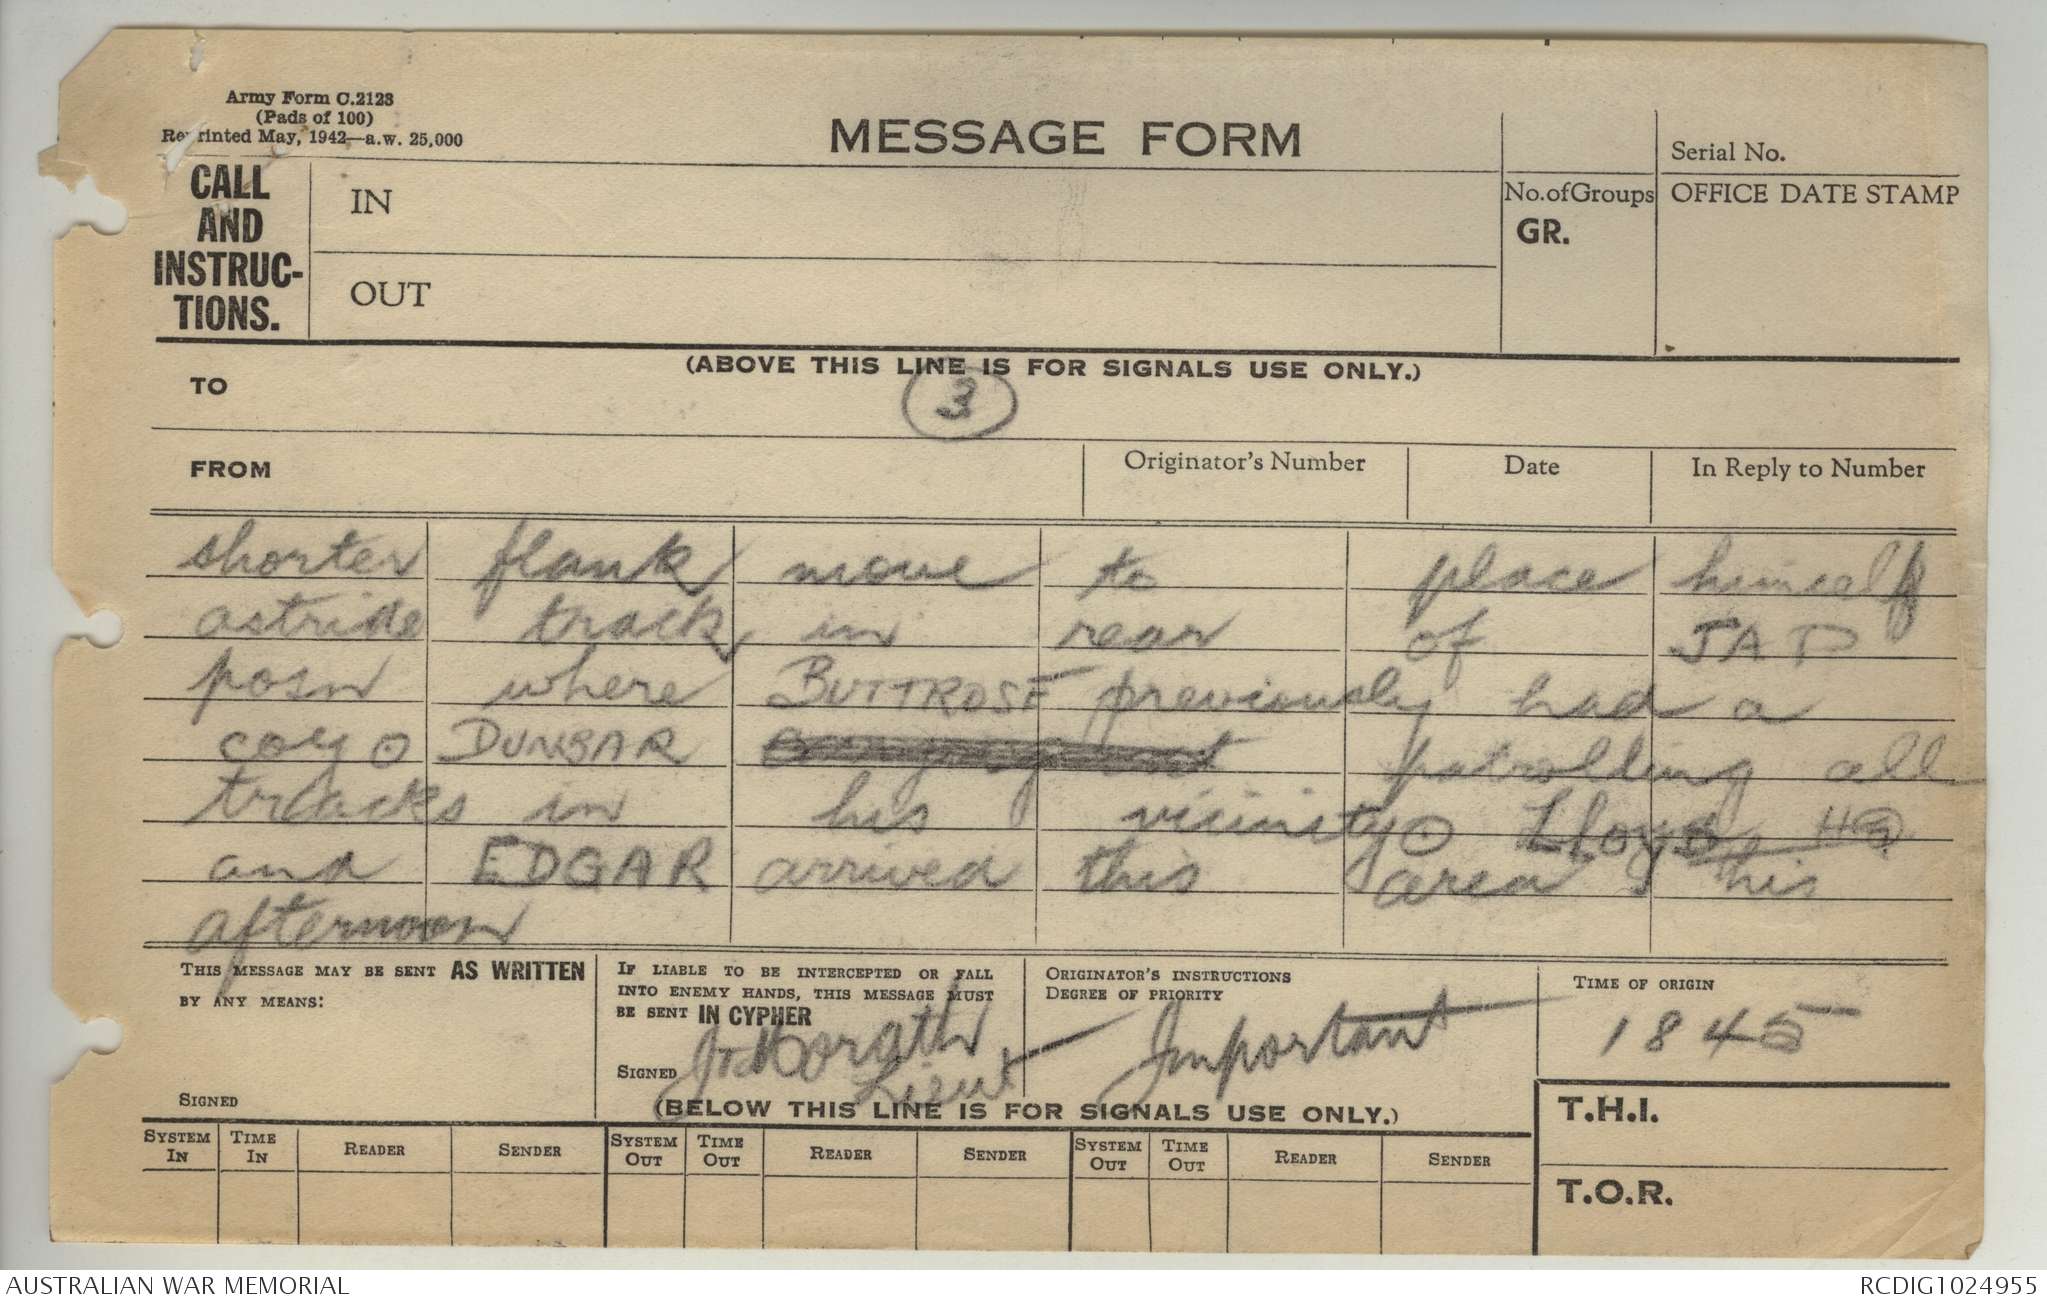 Army Form C.2123
(Pads of 100)
Reprinted May, 1942—a.w. 25,000
MESSAGE FORM
Serial No.
CALL
AND
INSTRUC-
TIONS.
IN
OUT
No. of Groups
GR.
OFFICE DATE STAMP
(ABOVE THIS LINE IS FOR SIGNALS USE ONLY.)
TO
3
FROM
Originator's Number
Date
In Reply to Number
shorter flank move to place himself
astride track, in rear of JAP
posn where BUTTROSE previously had a
coy ⊙ DUNBAR patrolling all
tracks in his vicinity ⊙ Lloyds HQ
and EDGAR arrived this area this
afternoon
THIS MESSAGE MAY BE SENT AS WRITTEN
BY ANY MEANS:
SIGNED
IF LIABLE TO BE INTERCEPTED OR FALL
INTO ENEMY HANDS, THIS MESSAGE MUST
BE SENT IN CYPHER
SIGNED
Lieut
ORIGINATOR'S INSTRUCTIONS
DEGREE OF PRIORITY
Important
TIME OF ORIGIN
1845
(BELOW THIS LINE IS FOR SIGNALS USE ONLY.)
T.H.I.
T.O.R.
SYSTEM IN
TIME IN
READER
SENDER
SYSTEM OUT
TIME OUT
READER
SENDER
SYSTEM OUT
TIME OUT
READER
SENDER
AUSTRALIAN WAR MEMORIAL
RCDIG1024955